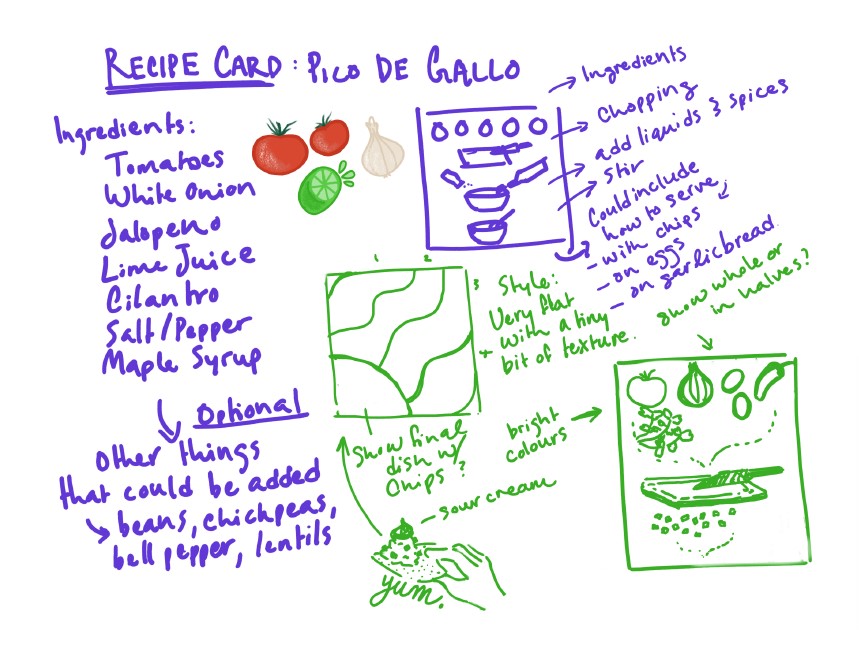 RECIPE CARD: PICO DE GALLO
Ingredients:
Tomatoes
White Onion
Jalopeno
Lime Juice
Cilantro
Salt/Pepper
Maple Syrup
Optional
Other things
that could be added
beans, chickpeas,
bell pepper, lentils
Ingredients
Chopping
add liquids & spices
Stir
Could include
how to serve
- with chips
- on eggs
- on garlic bread
1 2
3
Style:
Very flat
with a tiny
bit of texture.
Show final
dish w/
Chips?
sour cream
yum.
bright
colours
show whole or
in halves?